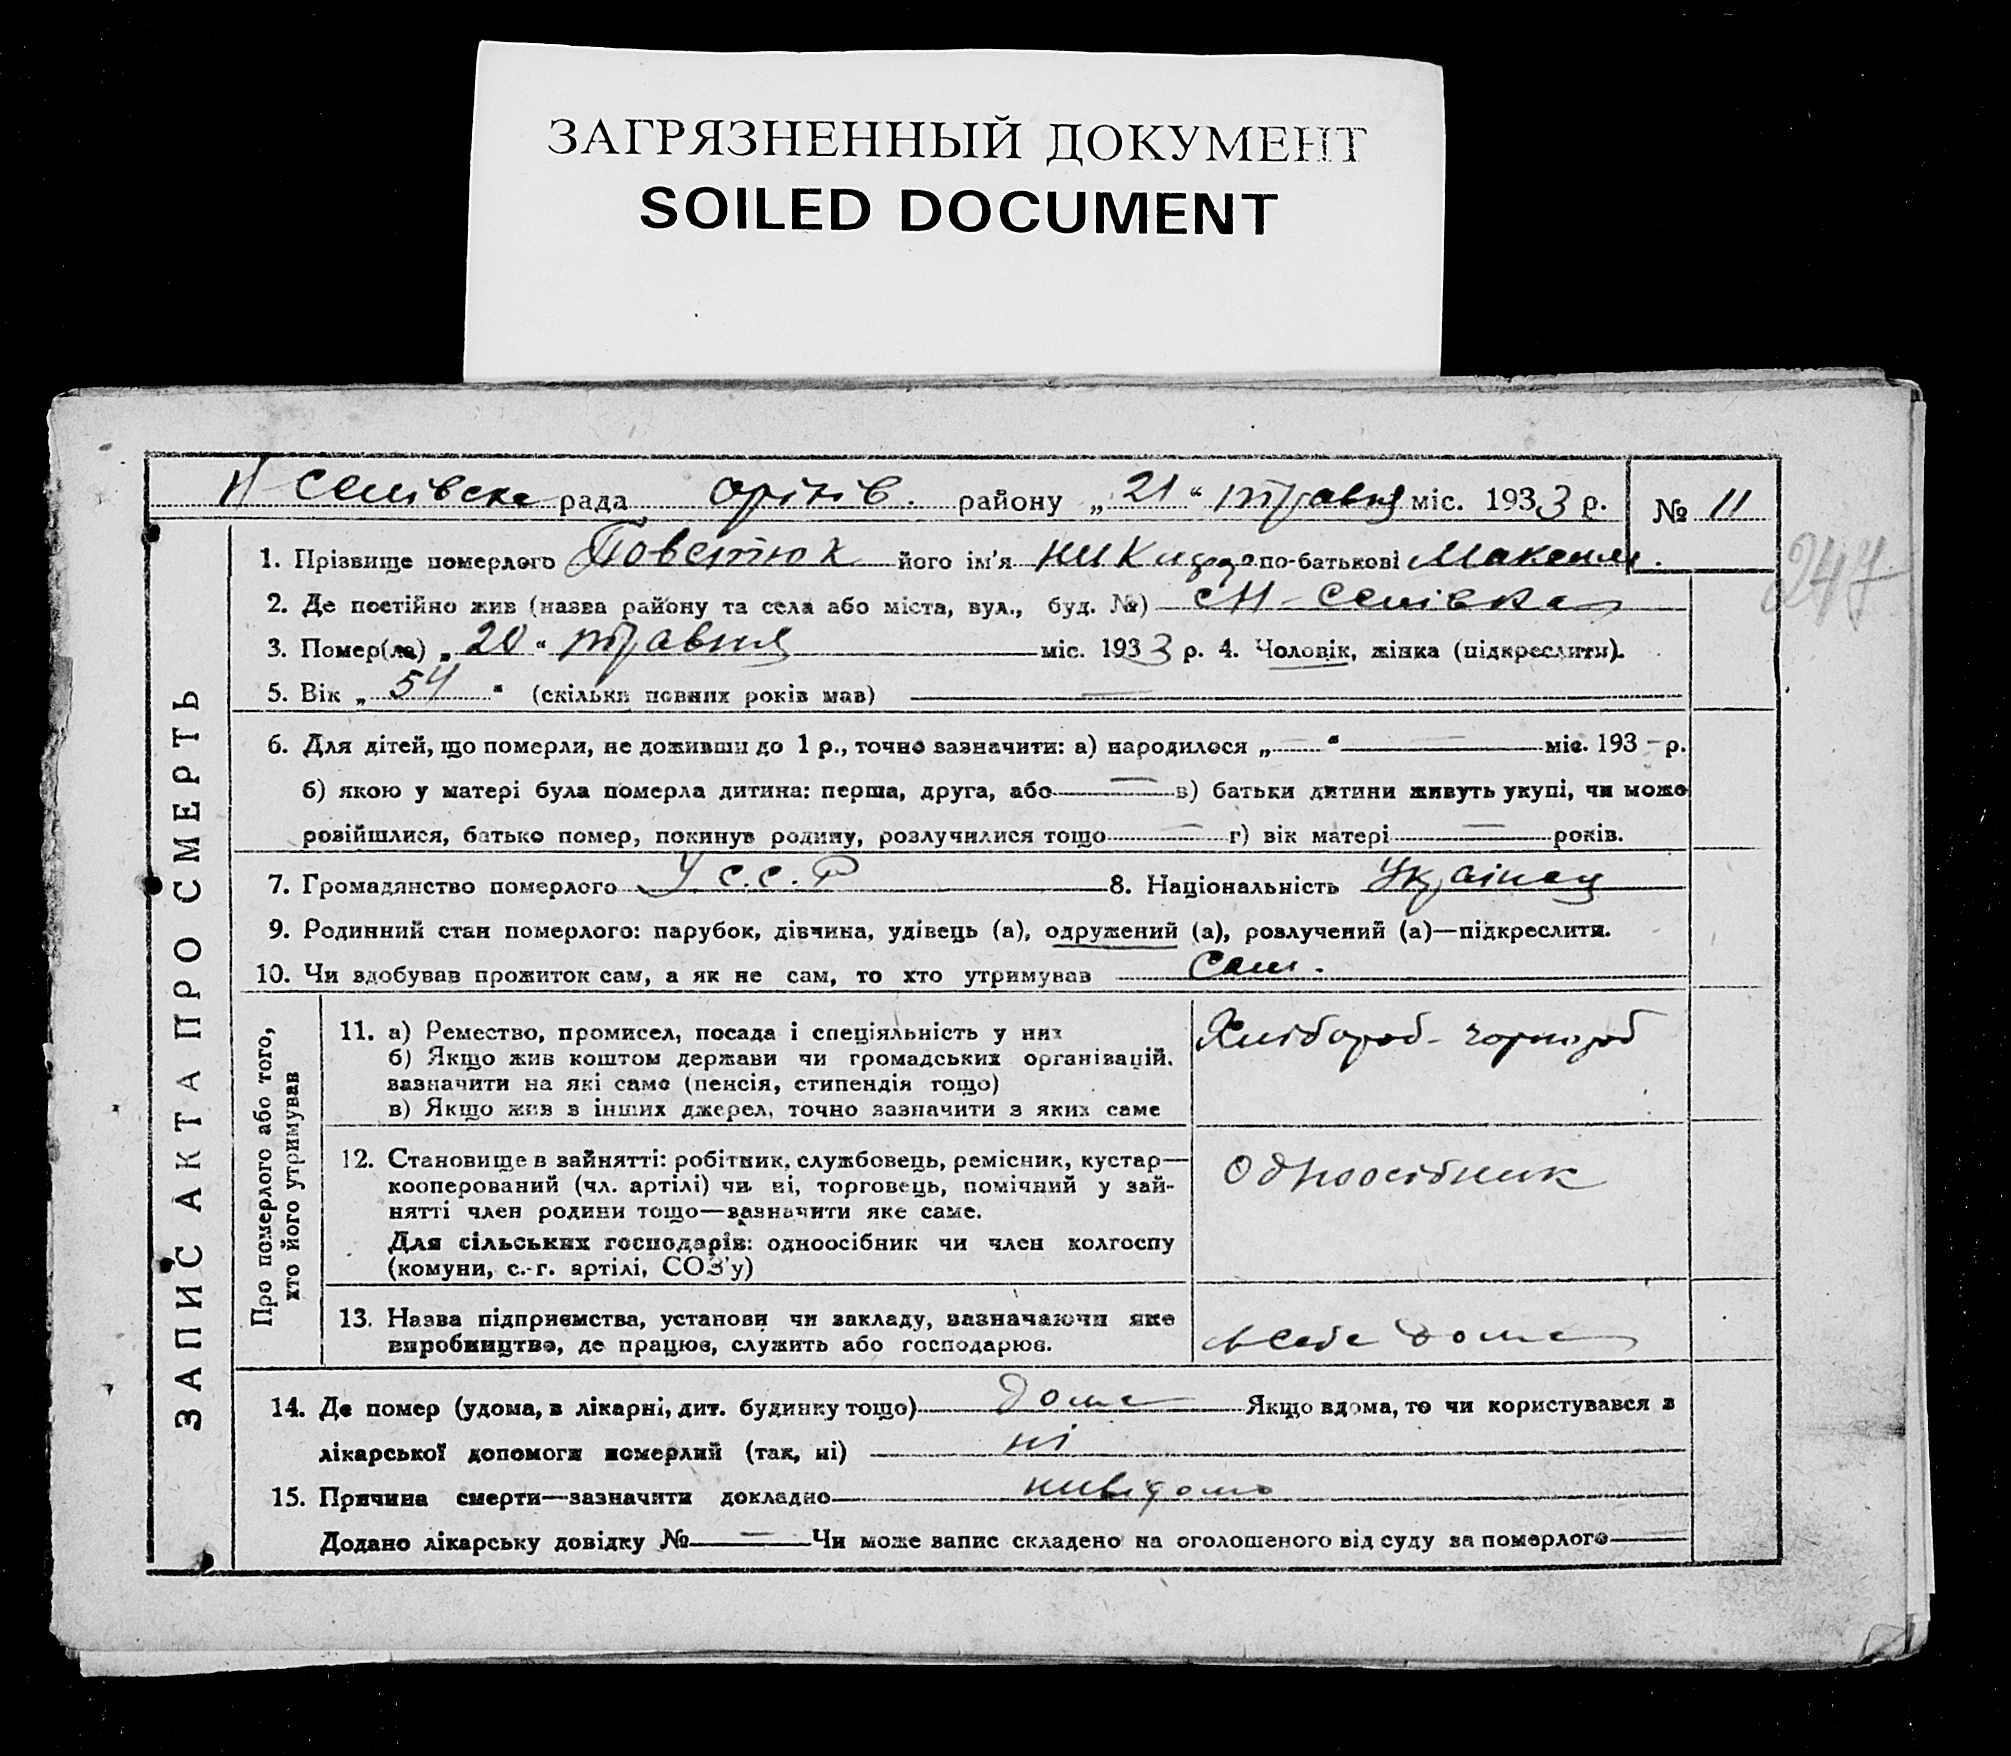 ЗАГРЯЗНЕННЫЙ ДОКУМЕНТ
SOILED DOCUMENT
Н Селівска рада оріхів. району „21“ травня міс. 1933 р. № 11
247
ЗАПИС АКТА ПРО СМЕРТЬ
1. Прізвище померлого Повстюк його ім'я Никифор по-батькові Максим.
2. Де постійно жив (назва району та села або міста, вул., буд. №) с Н-Селівка
3. Помер(ла) „20“ травня міс. 1933 р. 4. Чоловік, жінка (підкреслити).
5. Вік „54“ (скільки повних років мав) —
6. Для дітей, що померли, не доживши до 1 р., точно зазначити: а) народилося „—“ — міс. 193 - р.
б) якою у матері була померла дитина: перша, друга, або — в) батьки дитини живуть укупі, чи може
розійшлися, батько помер, покинув родину, розлучилися тощо — г) вік матері — років.
7. Громадянство померлого У С.С.Р 8. Національність Українец
9. Родинний стан померлого: парубок, дівчина, удівець (а), одружений (а), розлучений (а)—підкреслити.
10. Чи здобував прожиток сам, а як не сам, то хто утримував Сам.
Про померлого або того, хто його утримував
11. а) Ремество, промисел, посада і спеціяльність у них
б) Якщо жив коштом держави чи громадських організацій,
зазначити на які саме (пенсія, стипендія тощо)
в) Якщо жив з інших джерел, точно зазначити з яких саме
Хлібороб-чорнороб
12. Становище в зайнятті: робітник, службовець, ремісник, кустар—
кооперований (чл. артілі) чи ні, торговець, помічний у зай-
нятті член родини тощо—зазначити яке саме.
Для сільських господарів: одноосібник чи член колгоспу
(комуни, с.-г. артілі, СОЗ'у)
Одноосібник
13. Назва підприємства, установи чи закладу, зазначаючи яке
виробництво, де працює, служить або господарює.
в себе дома
14. Де помер (удома, в лікарні, дит. будинку тощо) Дома Якщо вдома, то чи користувався з
лікарської допомоги померлий (так, ні) ні
15. Причина смерти—зазначити докладно нивідомо
Додано лікарську довідку № — Чи може запис складено на оголошеного від суду за померлого —